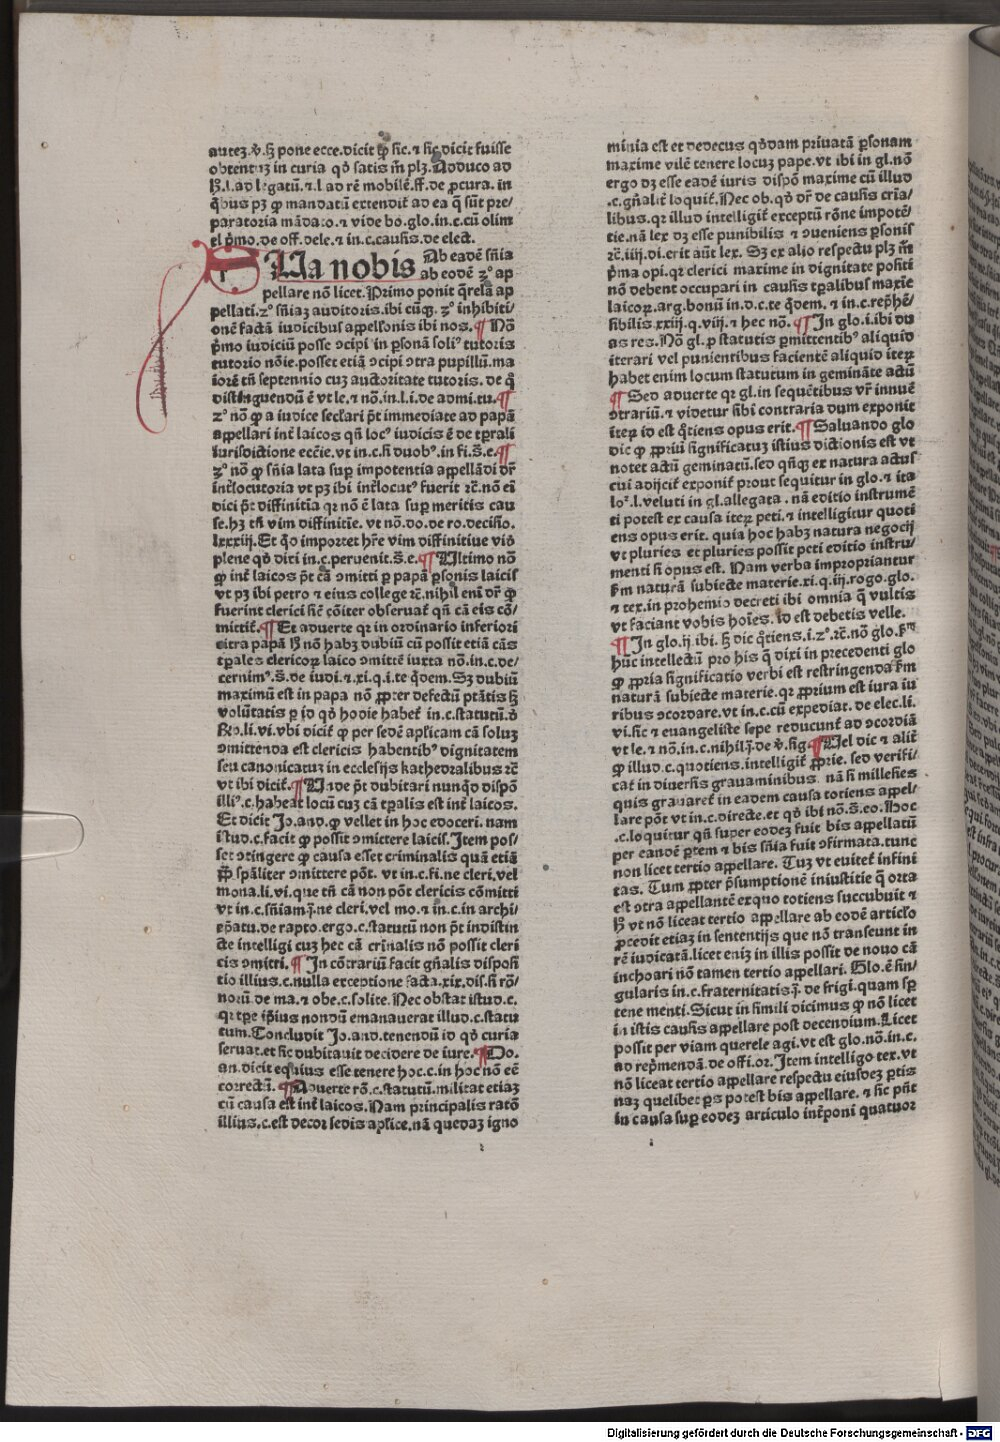 autez.ꝟ.ꝫ pone ecce.dicit ꝙ sic.⁊ sic dicit fuisse
obtentuz in curia qđ satis m̄ plꝫ.Adduco ad
ꝫ.l.ad legatū.⁊.l ad rē mobilē.ff.de ꝓcura. in
q̄bus pꝫ ꝙ mandatū extendit̄ ad ea q̄ sūt pre/
paratoria mādato.⁊ vide bo.glo.in.c.cū olim
el p̄mo.de off.dele.⁊ in.c.causis.de elect.
SUa nobis Ab eadē sn̄ia
ab eodē zͦ ap
pellare nō licet.Primo ponit q̄relā ap
pellati.zͦ sn̄iaz auditoris.ibi cūqꝫ. zͦ inhibiti/
onē factā iudicibus appellōnis ibi nos.¶ Nō
p̄mo iudiciū posse ↄcipi in ꝑsonā soliꝰ tutoris
tutorio nōie.posset etiā ↄcipi ↄtra pupillū.ma
iorē tn̄ septennio cuz auctoritate tutoris. de q̄
distinguendū ē vt le.⁊ nō.in.l.i.de admi.tu.¶
zͦ nō ꝙ a iudice seclari pt̄ immediate ad papā
appellari int̄ laicos qn̄ locꝰ iudicis ē de tꝑali
iurisdictione ecc̄ie.vt in.c.si duobꝰ.in fi.s̄.e.¶
zͦ nō ꝙ sn̄ia lata suꝑ impotentia appellādi dr̄
int̄locutoria vt pꝫ ibi int̄locutꝰ fuerit ⁊c̄.nō ei
dici pt̄ diffinitia qꝛ nō ē lata suꝑ meritis cau
se.hꝫ tn̄ vim diffinitie. vt nō.do.de ro.decisio.
lxxxiij.Et q̄o importet hr̄e vim diffinitiue vid̄
plene qđ dixi in.c.peruenit.s̄.e.¶ Ultimo nō
ꝙ int̄ laicos pt̄ cā ↄmitti ꝑ papā ꝑsonis laicis
vt pꝫ ibi petro ⁊ eius college ⁊c̄.nihil eni dr̄ ꝙ
fuerint clerici sic̄ cōiter obseruat̄ qn̄ cā eis cō/
mittit̄.¶ Et aduerte qꝛ in ordinario inferiori
citra papā ꝫ nō habꝫ dubiū cū possit etiā cās
tꝑales clericoꝝ laico ↄmitte iuxta nō.in.c.de/
cernimꝰ.s̄.de iudi.⁊.xi.q.i.te q̄dem.Sꝫ dubiū
maximū est in papa nō ꝓpter defectū ptātis ꝫ
volūtatis ꝑ id qđ hodie habet̄ in.c.statutū.d̄
Rō.li.vi.vbi dicit̄ ꝙ per sedē aplicam cā soluz
ↄmittenda est clericis habentibꝰ dignitatem
seu canonicatuz in ecclesijs kathedralibus ⁊c̄
vt ibi dicit̄.¶ Unde pt̄ dubitari nunqđ dispō
illiꝰ.c.habeat locū cuz cā tꝑalis est int̄ laicos.
Et dicit Jo.and.ꝙ vellet in hoc edoceri. nam
istud.c.facit ꝙ possit ↄmittere laicis. Item pos/
set ↄtingere ꝙ causa esset criminalis quā etiā
ꝑꝑ spāliter ↄmittere pōt. vt in.c.fi.ne cleri.vel
mona.li.vi.que tn̄ cā non pōt clericis cōmitti
vt in.c.sn̄iam.j̄.ne cleri.vel mo.⁊ in.c.in archi/
ep̄atu.de rapto.ergo.c.statutū non pt̄ indistin
cte intelligi cuz hec cā crīnalis nō possit cleri
cis ↄmitti.¶ In cōtrariū.facit gn̄alis disposi
tio illius.c.nulla exceptione facta.xix.dis.si rō/
norū.de ma.⁊ obe.c.solite.Nec obstat istud.c.
qꝛ tꝑe ip̄ius nondū emanauerat illud.c.statu
tum.Concludit Jo.and.tenendū id qđ curia
seruat.et sic dubitauit decidere de iure.¶ Do.
an.dicit equius esse tenere hoc.c.in hoc nō eē
correctā.¶ Aduerte rō.c.statutū.militat etiaz
cū causa est int̄ laicos.Nam principalis ratō
illius.c.est decor sedis aplice.nā quedaz igno
minia est et dedecus qđdam priuatā ꝑsonam
maxime vilē tenere locuz pape.vt ibi in gl.nō
ergo dꝫ esse eadē iuris dispō maxime cū illud
.c.gn̄alit̄ loquit̄.Nec ob.qđ dr̄ de causis crīa/
libus.qꝛ illud intelligit̄ exceptū rōne impotē/
tie.nā lex dꝫ esse punibilis ⁊ ↄueniens ꝑsonis
⁊c̄.iiij.di.erit aūt lex. Sꝫ ex alio respectu plꝫ m̄
p̄ma opi.qꝛ clerici maxime in dignitate positi
nō debent occupari in causis tꝑalibus maxie
laicoꝝ.arg.bonū in.d.c.te q̄dem. ⁊ in.c.rep̄hē/
sibilis.xxiij.q.viij.⁊ hec nō.¶ In glo.i.ibi du
as res.Nō gl.ꝑ statutis ꝑmittentibꝰ aliquid
iterari vel punientibus facientē aliquid iteꝝ
habet enim locum statutum in gemināte actū
¶ Sed aduerte qꝛ gl.in sequētibus vr̄ innuē
ↄtrariū.⁊ videtur sibi contraria dum exponit
iteꝝ id est q̄tiens opus erit.¶ Saluando glo
dic ꝙ ꝓpriū significatuz istius dictionis est vt
notet actū geminatū.sed qn̄qꝫ ex natura actus
cui adijcit̄ exponit̄ prout sequitur in glo.⁊ ita
loꝛ̄.l.veluti in gl.allegata. nā editio instrumē
ti potest ex causa iteꝝ peti.⁊ intelligitur quoti
ens opus erit. quia hoc habꝫ natura negocij
vt pluries et pluries possit peti editio instru/
menti si opus est. Nam verba impropriantur
ẜm naturā subiecte materie.xi.q.iij.rogo.glo.
⁊ tex.in prohemio decreti ibi omnia q̄ vultis
vt faciant vobis hoīes. id est debetis velle.
¶ In glo.ij ibi.ꝫ dic q̄tiens.i.zͦ.⁊c̄.nō glo.ẜm
hūc intellectū pro his q̄ dixi in precedenti glo
ꝙ ꝓpria significatio verbi est restringenda ẜm
naturā subiecte materie.qꝛ ꝓprium est iura iu
ribus ↄcordare.vt in.c.cū expediat. de elec.li.
vi.sic ⁊ euangeliste sepe reducunt̄ ad ↄcordiā
vt le.⁊ nō.in.c.nihil.j̄.de ꝟ.sig.¶ Uel dic ⁊ alit̄
ꝙ illud.c.quotiens.intelligit̄ ꝓprie. sed verifi/
cat̄ in diuersis grauaminibus. nā si millesies
quis grauaret̄ in eadem causa totiens appel/
lare pōt vt in.c.directe.et qđ ibi nō.s̄.eo. Hoc
.c.loquitur qn̄ super eodeꝫ fuit bis appellatū
per eandē ꝑtem ⁊ bis sn̄ia fuit ↄfirmata.tunc
non licet tertio appellare. Tuꝫ vt euitet̄ infini
tas. Tum ꝓpter p̄sumptionē iniustitie q̄ orta
est ↄtra appellantē exquo totiens succubuit ⁊
ꝫ vt nō liceat tertio appellare ab eodē articlo
ꝓcedit etiaꝫ in sententijs que nō transeunt in
rē iudicatā.licet enim in illis possit de nouo cā
inchoari nō tamen tertio appellari. Glo.ē sin/
gularis in.c.fraternitatis.j̄.de frigi.quam sꝑ
tene menti.Sicut in simili dicimus ꝙ nō licet
in istis causis appellare post decendium.Licet
possit per viam querele agi.vt est glo.nō.in.c.
ad rep̄mendā.de offi.or. Item intelligo tex.vt
nō liceat tertio appellare respectu eiusdeꝫ ꝑtis
naꝫ quelibet ꝑs potest bis appellare. ⁊ sic pn̄t
in causa suꝑ eodeꝫ articulo int̄poni quatuor
Digitalisierung gefördert durch die Deutsche Forschungsgemeinschaft - DFG